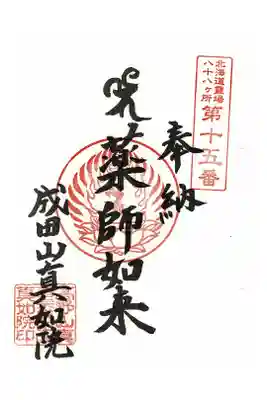 北海道霊場
八十八ヶ所
第十五番
奉納
薬師如来
成田山真如院